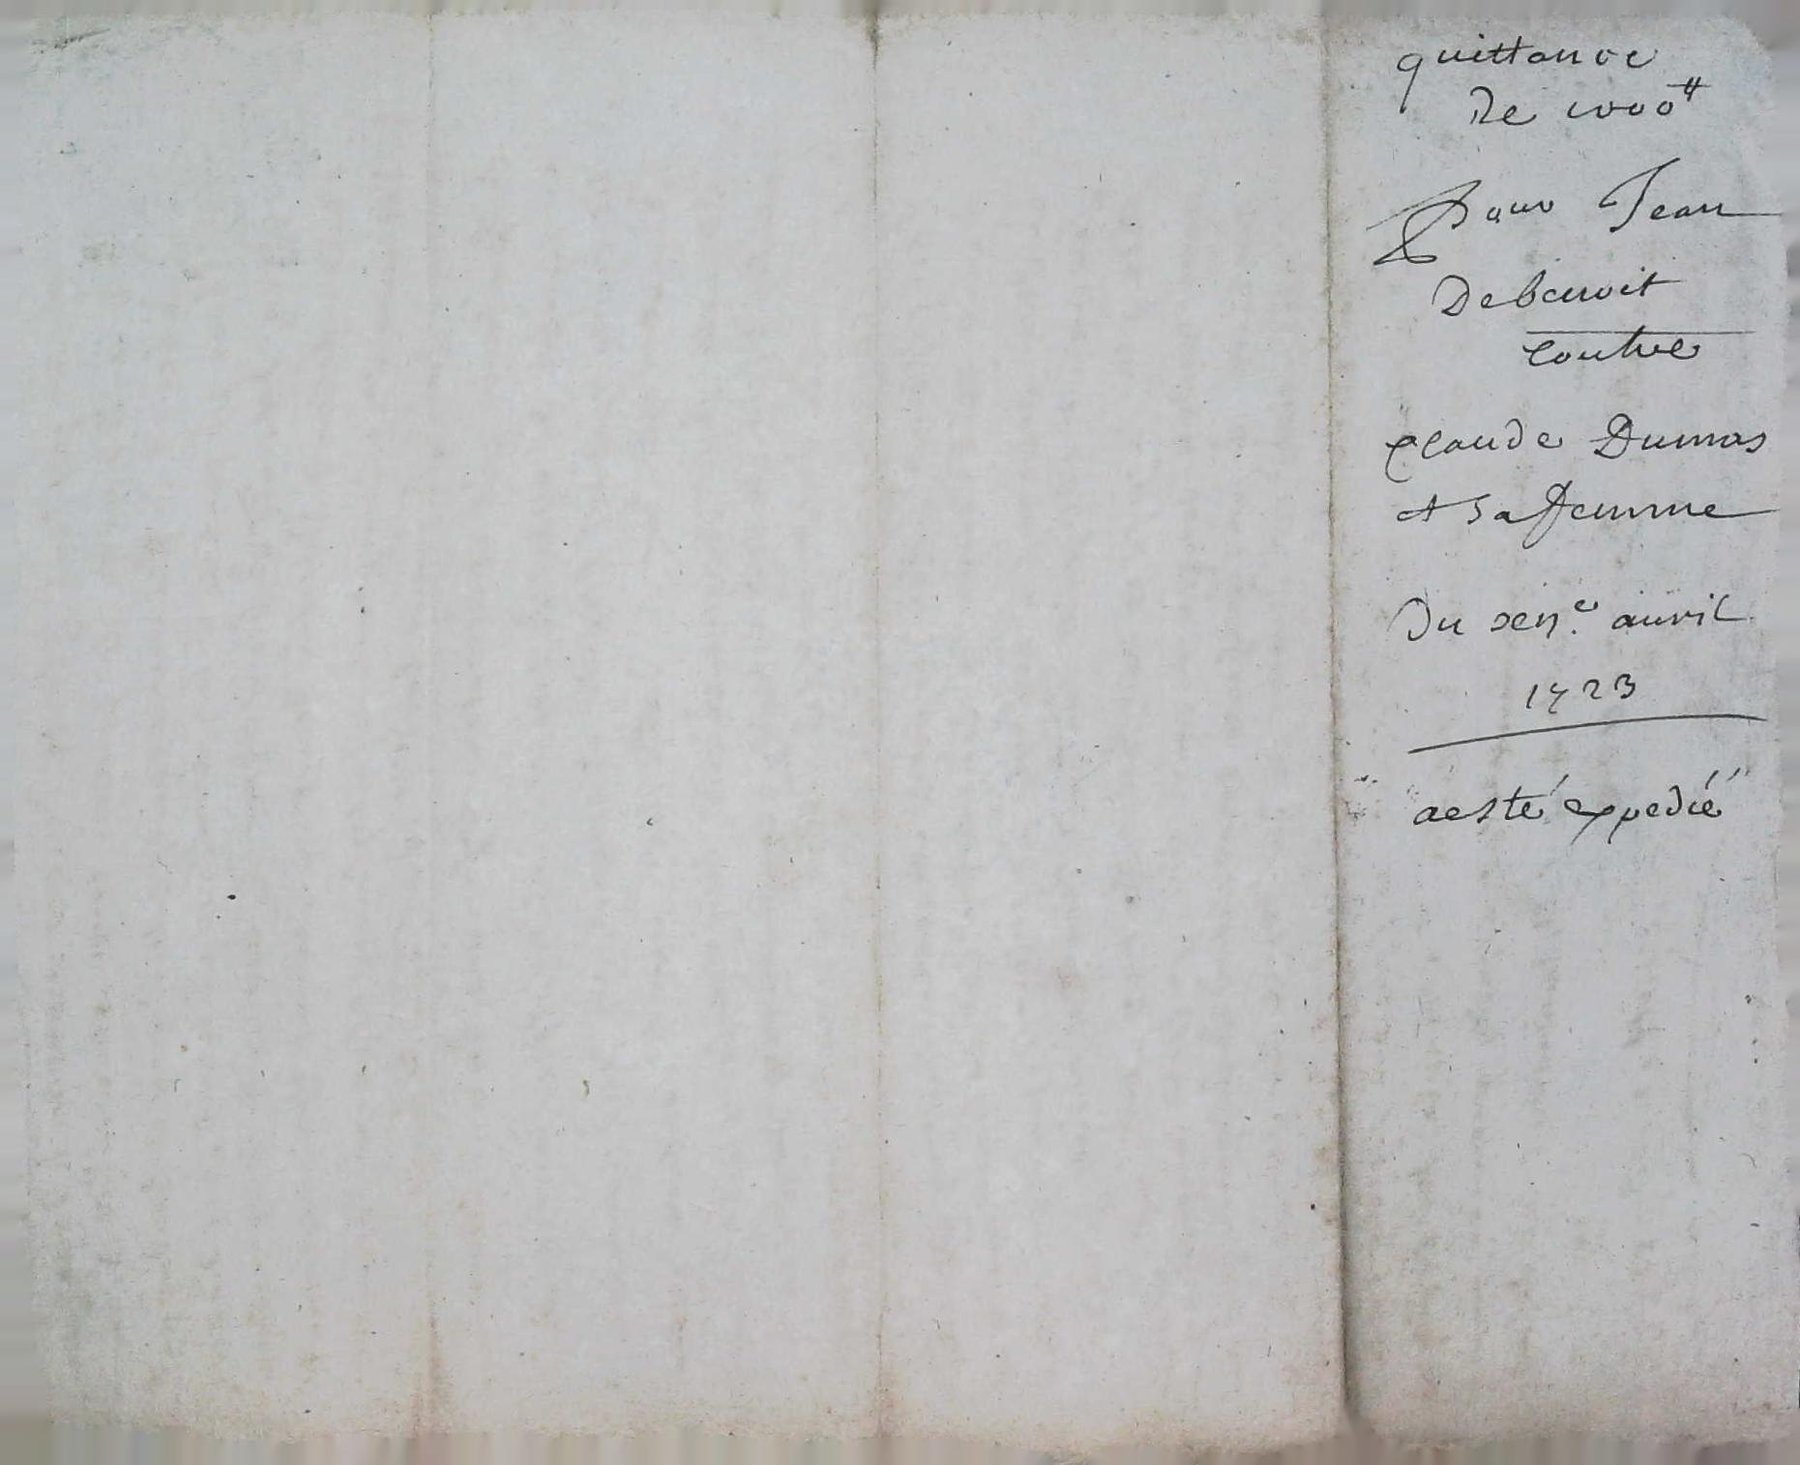 quittance
de 1000ᵗᵗ
Pour Jean
Debenoit
Contre
Claude Dumas
et sa femme
Du auvril
1723
aesté expedié